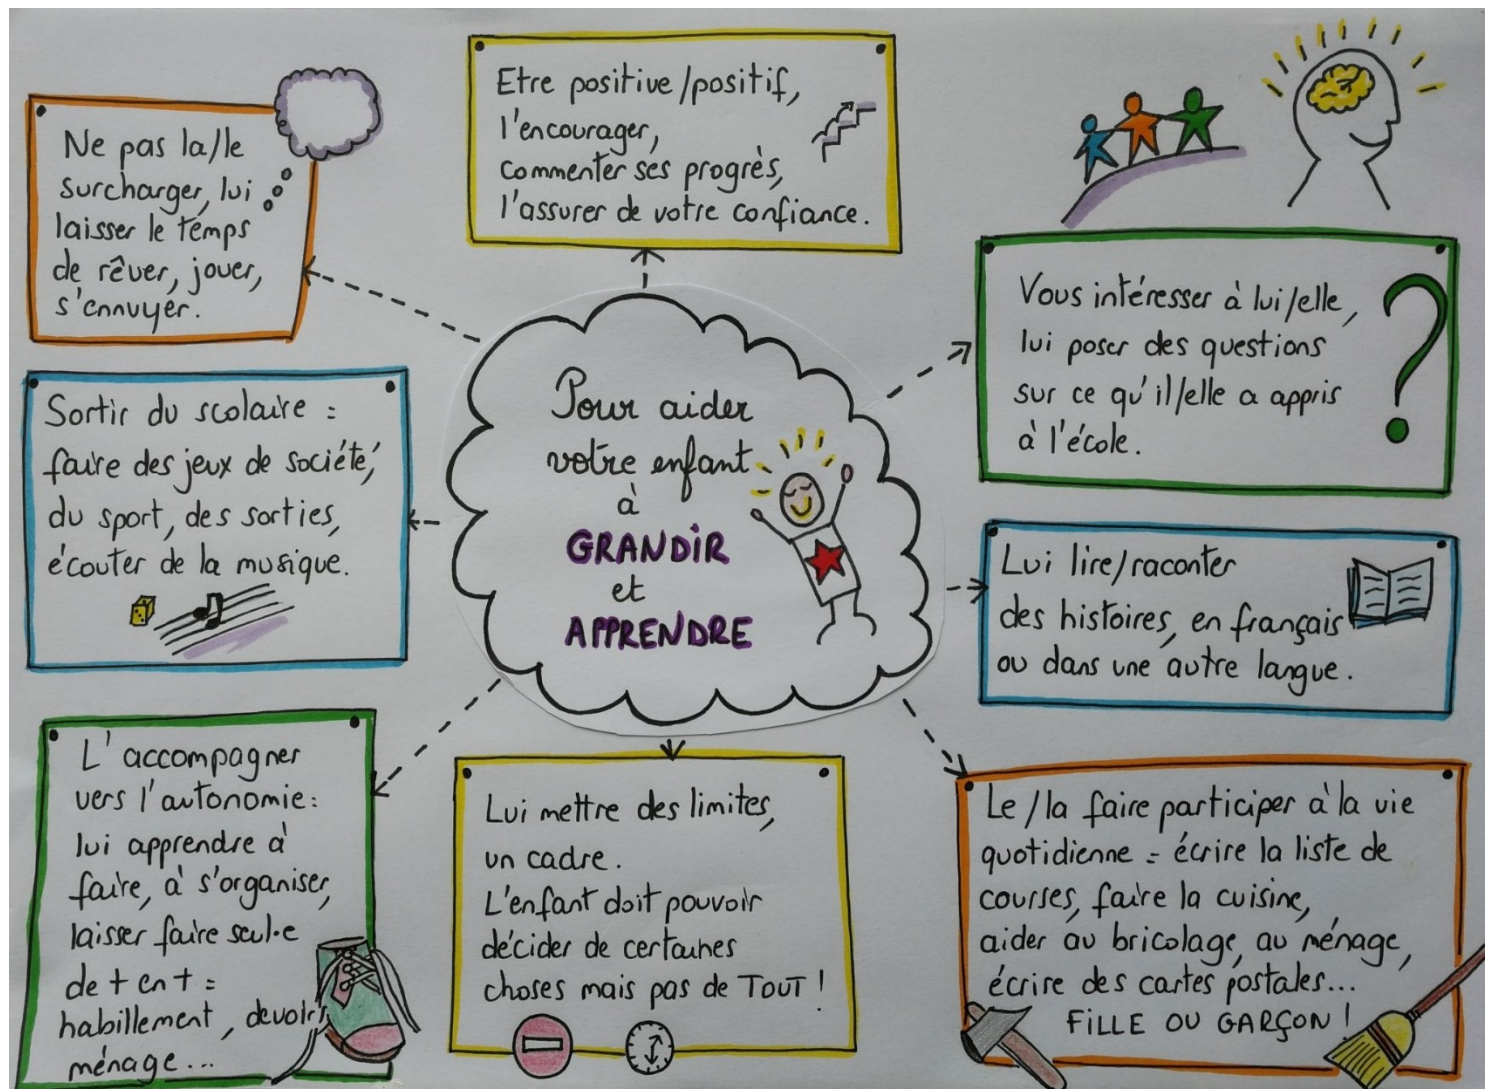 Pour aider
votre enfant
à
GRANDIR
et
APPRENDRE
Etre positive/positif,
l'encourager,
commenter ses progrès,
l'assurer de votre confiance.
Vous intéresser à lui/elle,
lui poser des questions
sur ce qu'il/elle a appris
à l'école.
Lui lire/raconter
des histoires, en français
ou dans une autre langue.
Le/la faire participer à la vie
quotidienne = écrire la liste de
courses, faire la cuisine,
aider au bricolage, au ménage,
écrire des cartes postales...
FILLE OU GARÇON !
Lui mettre des limites,
un cadre.
L'enfant doit pouvoir
décider de certaines
choses mais pas de TOUT !
L'accompagner
vers l'autonomie :
lui apprendre à
faire, à s'organiser,
laisser faire seul·e
de + en + =
habillement, devoirs
ménage...
Sortir du scolaire =
faire des jeux de société,
du sport, des sorties,
écouter de la musique.
Ne pas la/le
surcharger, lui
laisser le temps
de rêver, jouer,
s'ennuyer.
?